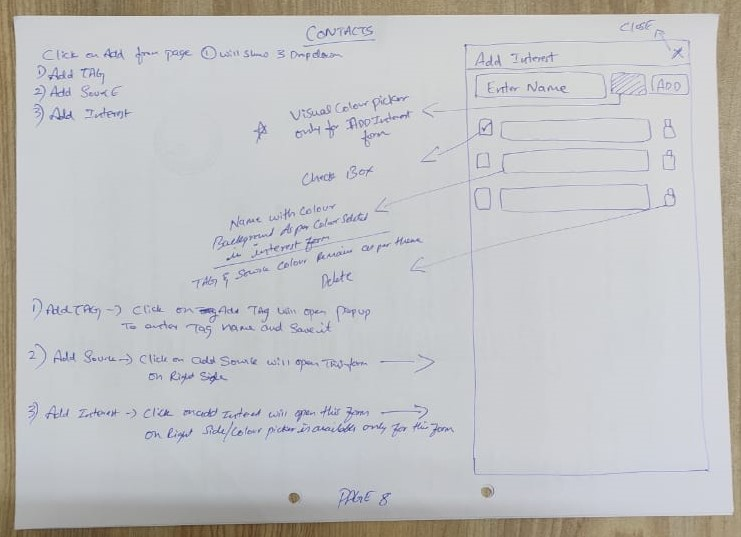 CONTACTS
Click on Add from page ① will show 3 Dropdown
1) Add TAG
2) Add SourcE
3) Add Interest
CLOSE
Add Interest X
Enter Name ADD
☆ Visual Colour picker
only for ADD Interest
form
Check Box
Name with Colour
Background As per Color Selected
in interest form
TAG & Source Colour Remains as per theme
Delete
1) Add TAG -> Click on Add TAG will open popup
To enter Tag name and Save it
2) Add Source -> Click on add Source will open This form
on Right Side
3) Add Interest -> Click on add Interest will open this form
on Right Side/Colour picker is available only for this form
PAGE 8